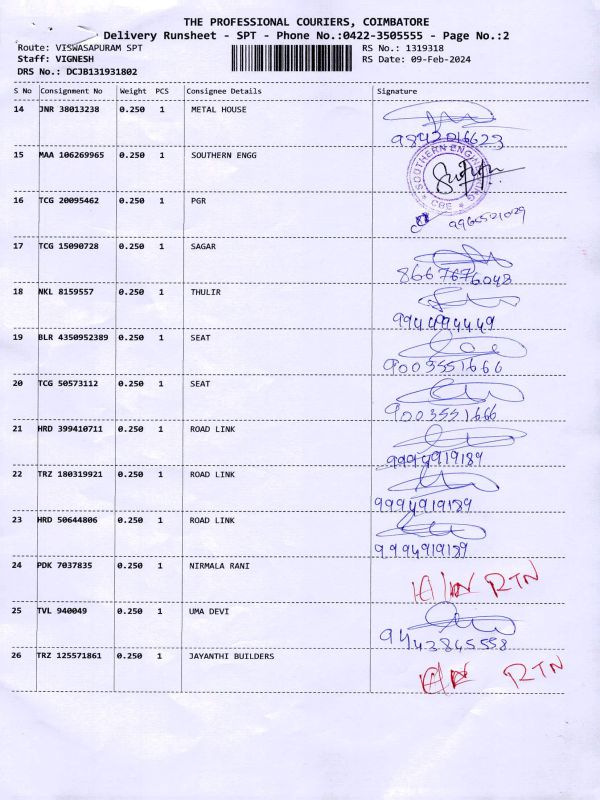 THE PROFESSIONAL COURIERS, COIMBATORE
Delivery Runsheet - SPT - Phone No.:0422-3505555 - Page No.:2
Route: VISWASAPURAM SPT RS No.: 1319318
Staff: VIGNESH RS Date: 09-Feb-2024
DRS No.: DCJB131931802
S No Consignment No Weight PCS Consignee Details Signature
14 JNR 38013238 0.250 1 METAL HOUSE
9842016623
15 MAA 106269965 0.250 1 SOUTHERN ENGG
SOUTHERN ENGINEERING
* CBE *
16 TCG 20095462 0.250 1 PGR
9965521029
17 TCG 15090728 0.250 1 SAGAR
8667676048
18 NKL 8159557 0.250 1 THULIR
9944994449
19 BLR 4350952389 0.250 1 SEAT
9003551666
20 TCG 50573112 0.250 1 SEAT
9003551666
21 HRD 399410711 0.250 1 ROAD LINK
9994919189
22 TRZ 180319921 0.250 1 ROAD LINK
9994919189
23 HRD 50644806 0.250 1 ROAD LINK
9994919189
24 PDK 7037835 0.250 1 NIRMALA RANI RTN
25 TVL 940049 0.250 1 UMA DEVI
9443845558
26 TRZ 125571861 0.250 1 JAYANTHI BUILDERS RTN